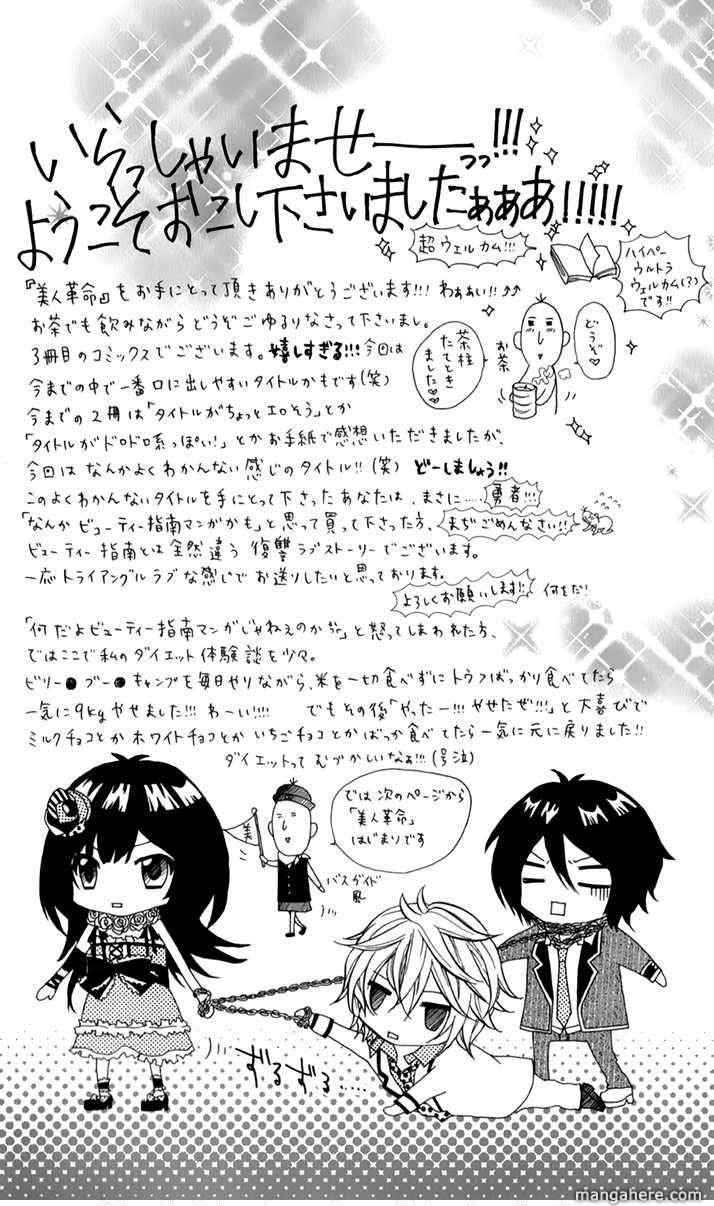 いらっしゃいませーーっっ!!!
ようこそおこし下さいましたぁぁあ!!!!!
超ウェルカム!!!
ハイパー
ウルトラ
ウェルカム(?)
です!!
『美人革命』をお手にとって頂きありがとうございます!!! わぁぁい!!
お茶でも飲みながらどうぞごゆるりなさって下さいまし。
3冊目のコミックスでございます。嬉しすぎる!!! 今回は
今までの中で一番口に出しやすいタイトルかもです(笑)
今までの2冊は「タイトルがちょっとエロそう」とか
「タイトルがドロドロ系っぽい!」とかお手紙で感想いただきましたが、
今回はなんかよくわかんない感じのタイトル!!(笑) どーしましょう!!
茶柱
たてとき
ました♡
お茶
どうぞ♡
このよくわかんないタイトルを手にとって下さったあなたは、まさに……勇者!!!
「なんかビューティー指南マンガかも」と思って買って下さった方、まぢごめんなさい!!
ビューティー指南とは全然違う復讐ラブストーリーでございます。
一応トライアングルラブな感じでお送りしたいと思っております。
よろしくお願いします!! 何をだ!
「何だよビューティー指南マンガじゃねえのかよ」と怒ってしまわれた方、
ではここで私のダイエット体験談を少々。
ビリー●ブー●キャンプを毎日やりながら、米を一切食べずにトウフばっかり食べてたら
一気に9kgやせました!!! わーい!!!! でもその後「やったー!!! やせたぜ!!!」と大喜びで
ミルクチョコとかホワイトチョコとかいちごチョコとかばっか食べてたら一気に元に戻りました!!
ダイエットってむづかしいなぁ!!!(号泣)
美
では次のページから
「美人革命」
はじまりです
バスガイド
風
ずるずる……
mangahere.com